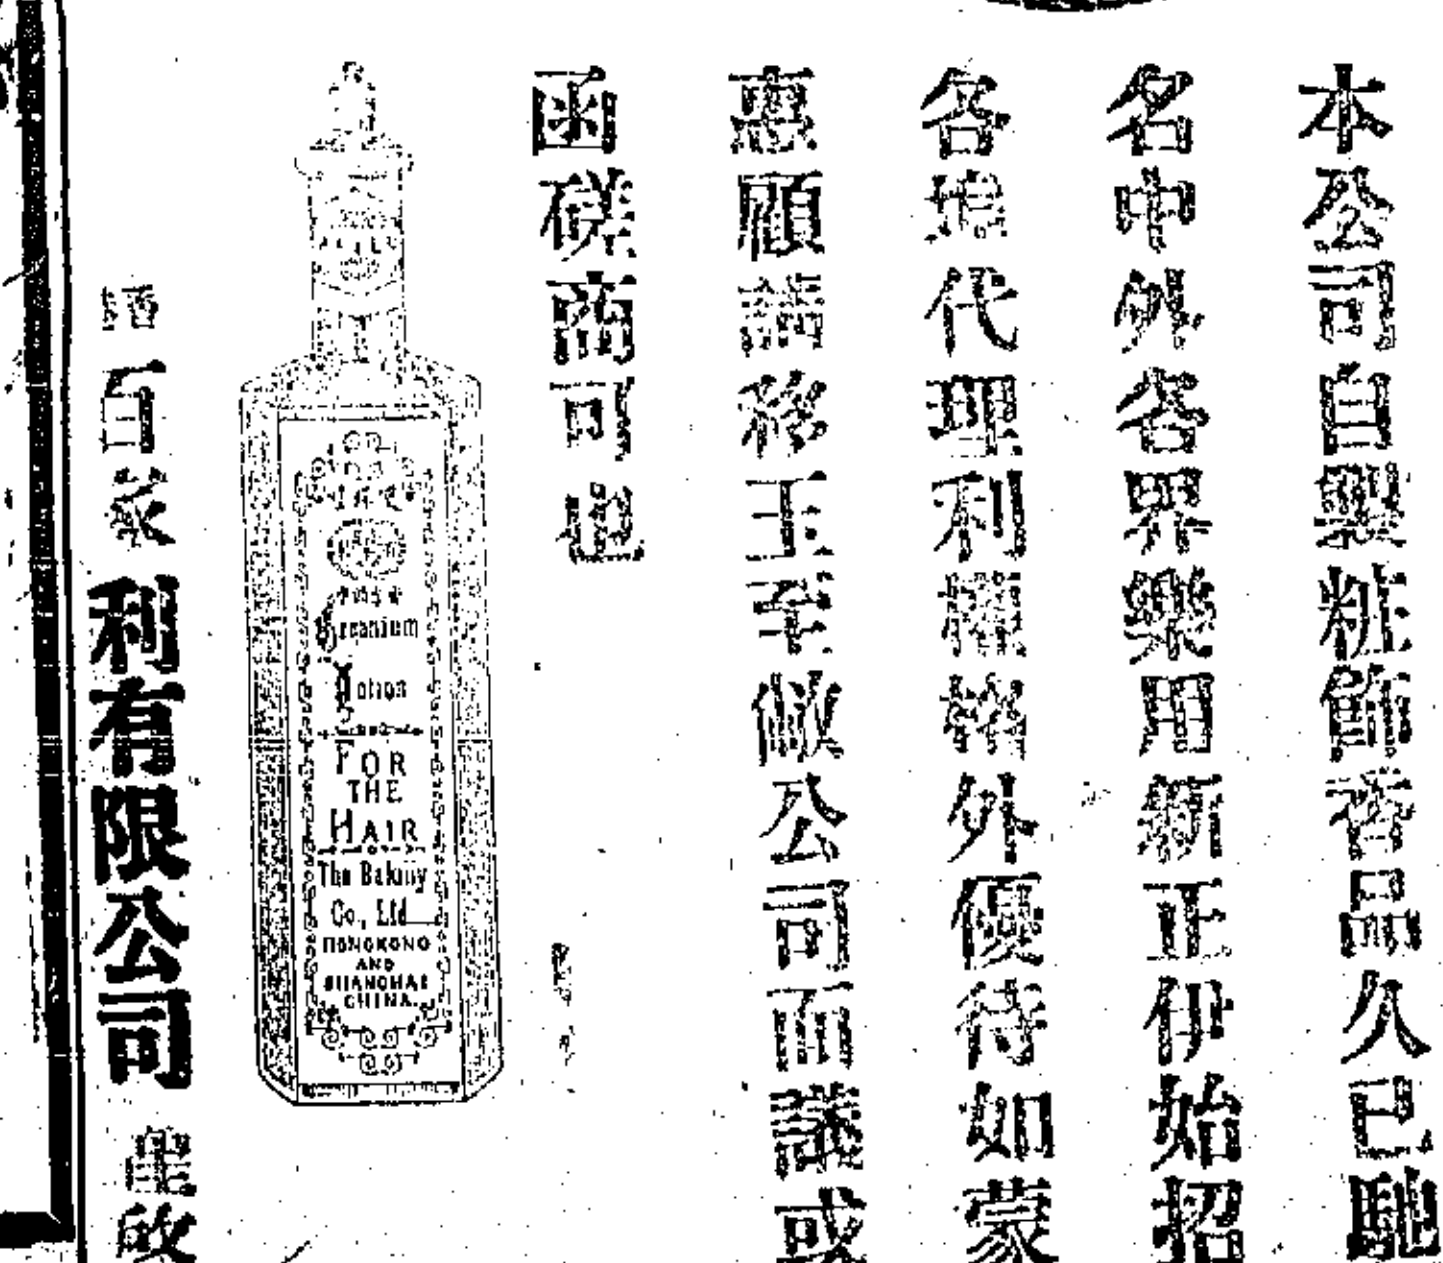 本公司自製粧飾香品久已馳
名中外各界樂用新正伊始招
各埠代理利權外優待如蒙
惠顧請移玉至敝公司面議或
函磋商可也
Geranium
Lotion
FOR
THE
HAIR
The
Co., Ltd
HONGKONG
AND
SHANGHAI
CHINA
利有限公司
啟